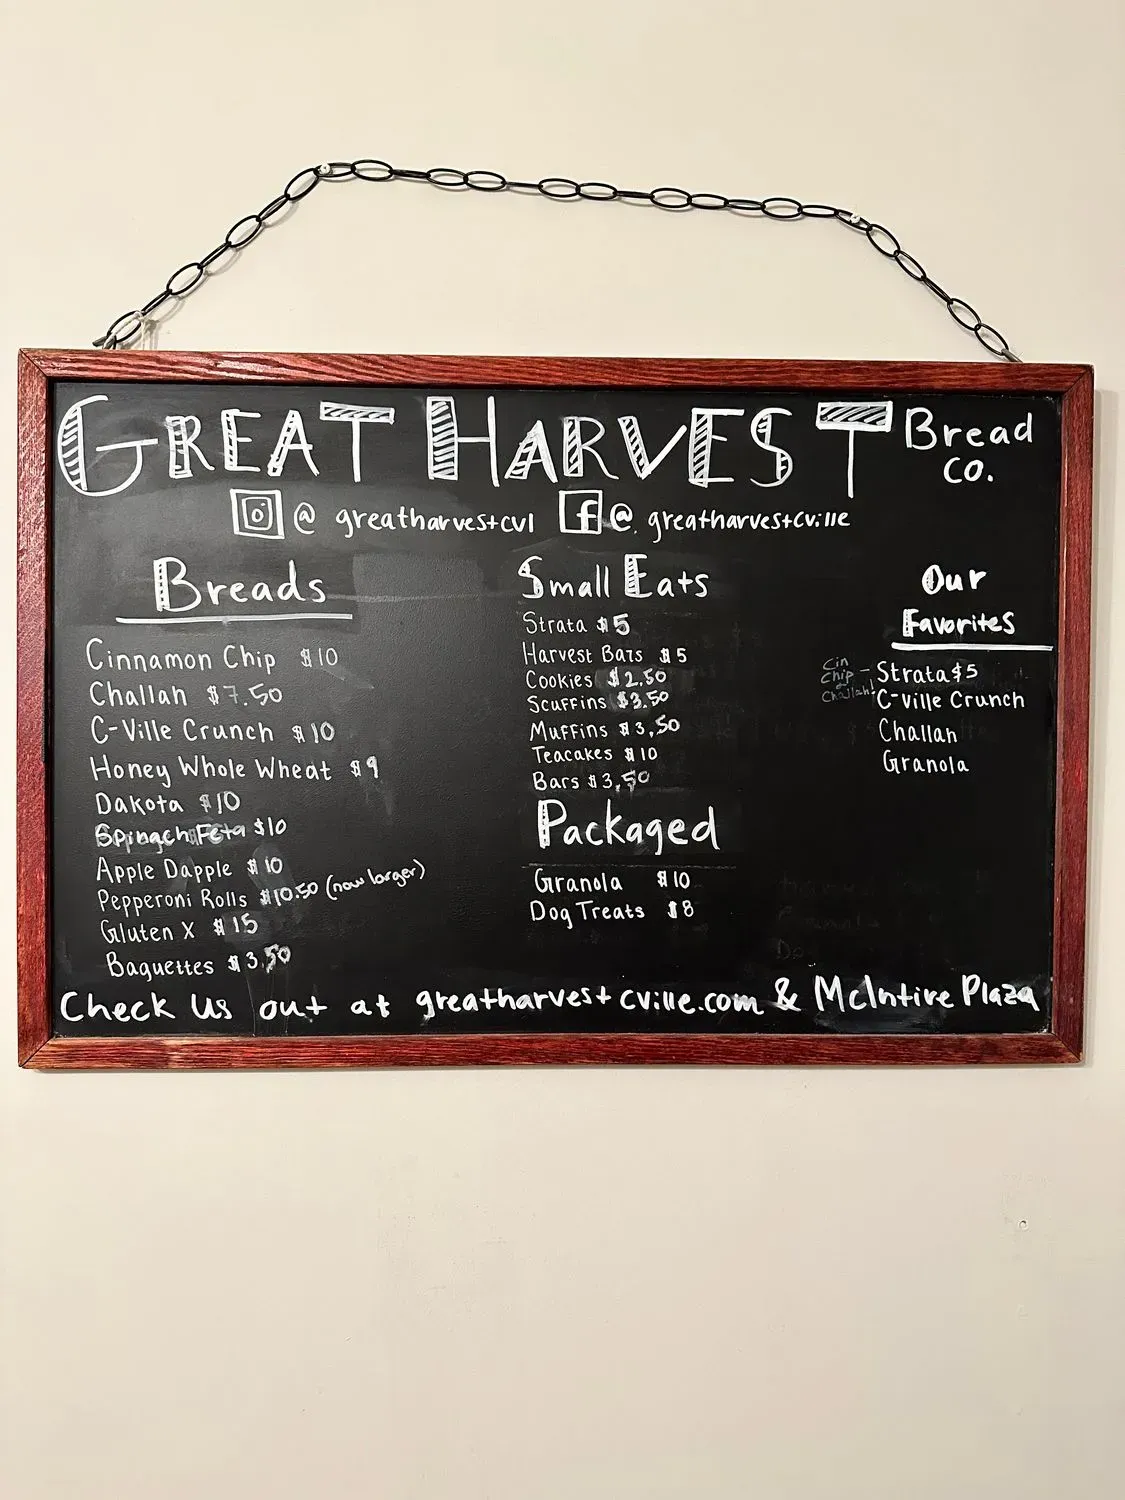 GREAT HARVEST Bread
co.
@ greatharvestcvl f @ greatharvestcville
Breads
Cinnamon Chip $10
Challah $7.50
C-Ville Crunch $10
Honey Whole Wheat $9
Dakota $10
Spinach Feta $10
Apple Dapple $10
Pepperoni Rolls $10.50 (now larger)
Gluten X $15
Baguettes $3.50
Small Eats
Strata $5
Harvest Bars $5
Cookies $2.50
Scuffins $3.50
Muffins $3.50
Teacakes $10
Bars $3.50
Packaged
Granola $10
Dog Treats $8
Our
Favorites
Cin
Chip -
Challah!
Strata $5
C-Ville Crunch
Challah
Granola
Check Us out at greatharvestcville.com & McIntire Plaza